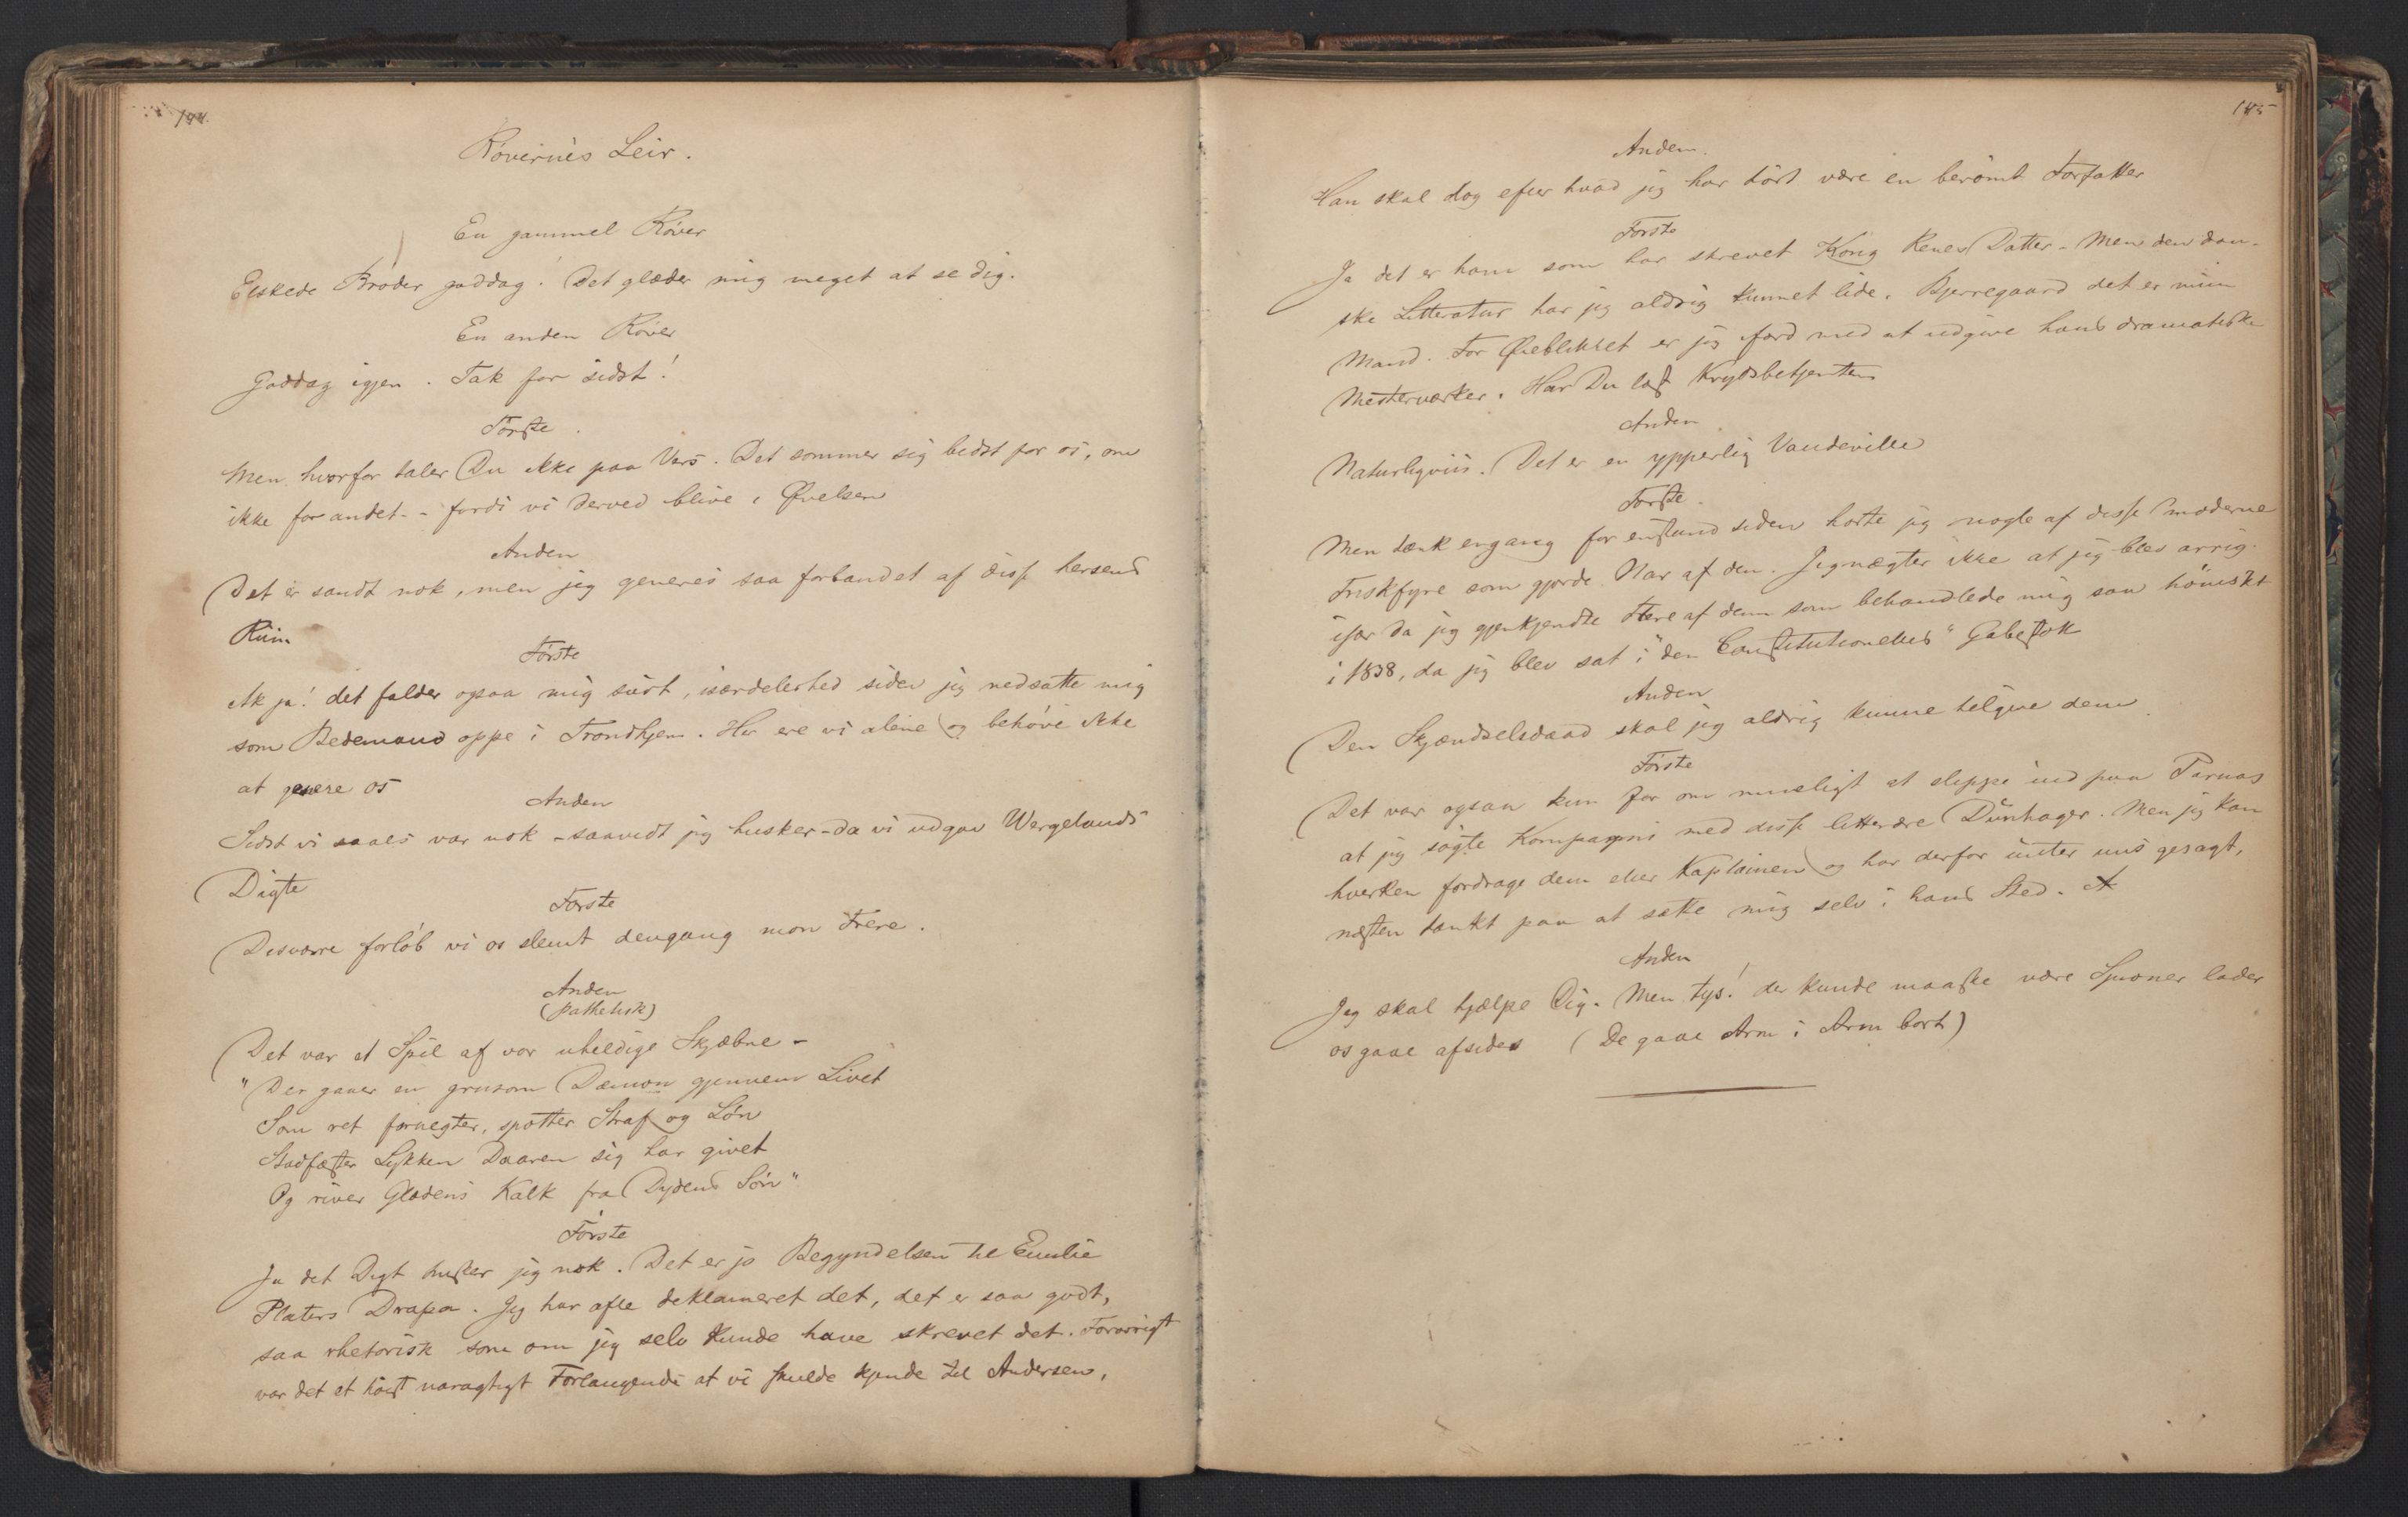 144.
Røvernes Leir.
En gammel Røver
Elskede Broder goddag! Det glæder mig meget at se dig.
En anden Røver
Goddag igjen. Tak for sidst!
Første.
Men hvorfor taler Du ikke paa Vers. Det sømmer sig bedst for os, om
ikke for andet - - fordi vi derved blive i Øvelsen
Anden
Det er sandt nok, men jeg generes saa forbandet af disse hersens
Riim
Første
Ak ja! det falder ogsaa mig svært, isærdeleshed siden jeg nedsatte mig
som Bedemand oppe i Trondhjem. Her ere vi alene og behøve ikke
at genere os
Anden
Sidst vi saaes var nok - saavidt jeg husker - da vi udgav Wergelands
Digte
Første
Desværre forløb vi os slemt dengang mon Frere.
Anden
(pathetisk)
Det var et Spil af vor uheldige Skjæbne -
"Der gaaer en grusom Dæmon gjennem Livet
Som ret fornegter, spotter Straf og Løn
Stadfæster Lykken Daaren sig har givet
Og river Glædens Kalk fra Dydens Søn"
Første
Ja det Digt husker jeg nok. Det er jo Begyndelsen til Emilie
Platers Drapa. Jeg har ofte deklameret det, det er saa godt,
saa rhetorisk som om jeg selv kunde have skrevet det. Forørrigt
var det et høist naragtigt Forlangende at vi skulde kjende til Andersen,
145
Anden.
Han skal dog efter hvad jeg har hört være en berømt Forfatter
Første
Ja det er ham som har skrevet Kong Renes Datter - Men den dan-
ske Litteratur har jeg aldrig kunnet lide. Bjerregaard det er min
Mand. For Øieblikket er jeg ifærd med at udgive hans dramatiske
Mesterværker. Har Du læst Krydsbetjenten
Anden
Naturligviis. Det er en ypperlig Vaudeville
Første.
Men tænk engang for en stund siden hørte jeg nogle af disse moderne
Friskfyre som gjorde Nar af den. Jeg nægter ikke at jeg blev arrig
især da jeg gjenkjendte flere af dem som behandlede mig saa hönisk
i 1838, da jeg blev sat i "den Constitutionelles" Gabestok
Anden
Den Skjændselsdaad skal jeg aldrig kunne tilgive dem.
Første
Det var ogsaa kun for om mueligt at slippe ind paa Parnas
at jeg søgte Kompagni med disse litterære Dünhager. Men jeg kan
hverken fordrage dem eller Kaptainen og har derfor unter uns gesagt,
næsten tænkt paa at sætte mig selv i hans Sted.
Anden
Jeg skal hjælpe Dig. Men tys! der kunde maaske være Spioner lader
os gaae afsides (De gaae Arm i Arm bort)